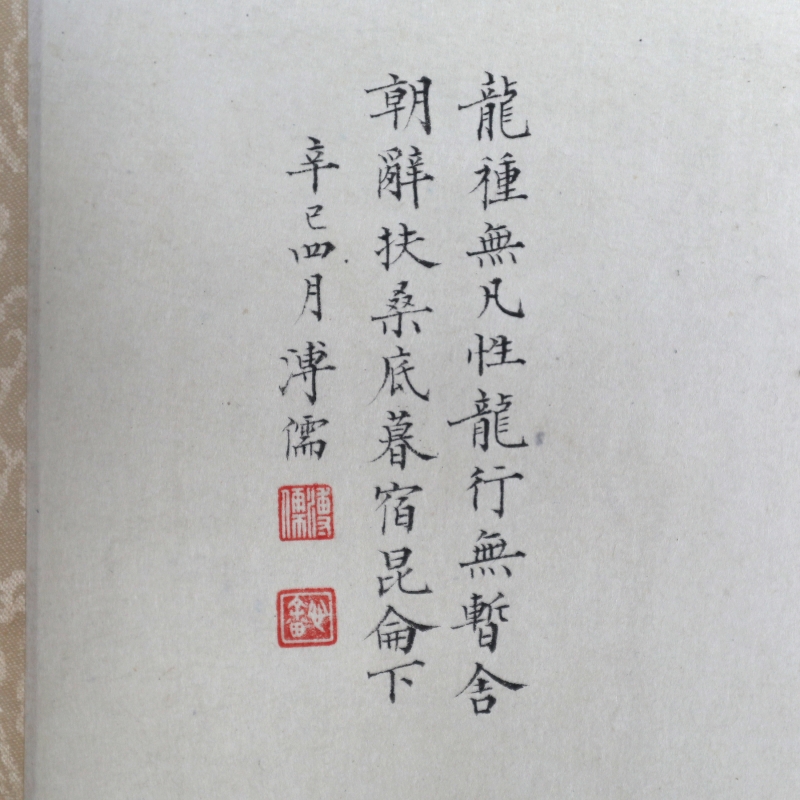 龍種無凡性龍行無暫舍
朝辭扶桑底暮宿昆侖下
辛巳四月溥儒
溥儒